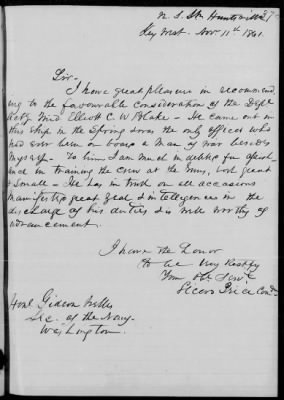 U. S. St. Huntsville 27
Key West. Nov 11th 1861.
Sir.
I have great pleasure in recommend
ing to the favourable consideration of the Dept
Actg Mid Elliott C. V. Blake - He came out in
this ship in the Spring & was the only officer who
had ever been on board a Man of war besides
myself. To him I am much in debt for assist
ance in training the crew at the Guns, both great
& small - He has in truth on all occasions
manifested great Zeal & intelligence in the
discharge of his duties & is well worthy of
advancement.
I have the honor
to be Very Respfy
Your Obt Servt
Cicero Price Comd
Honl Gideon Welles
Sec. of the Navy.
Washington